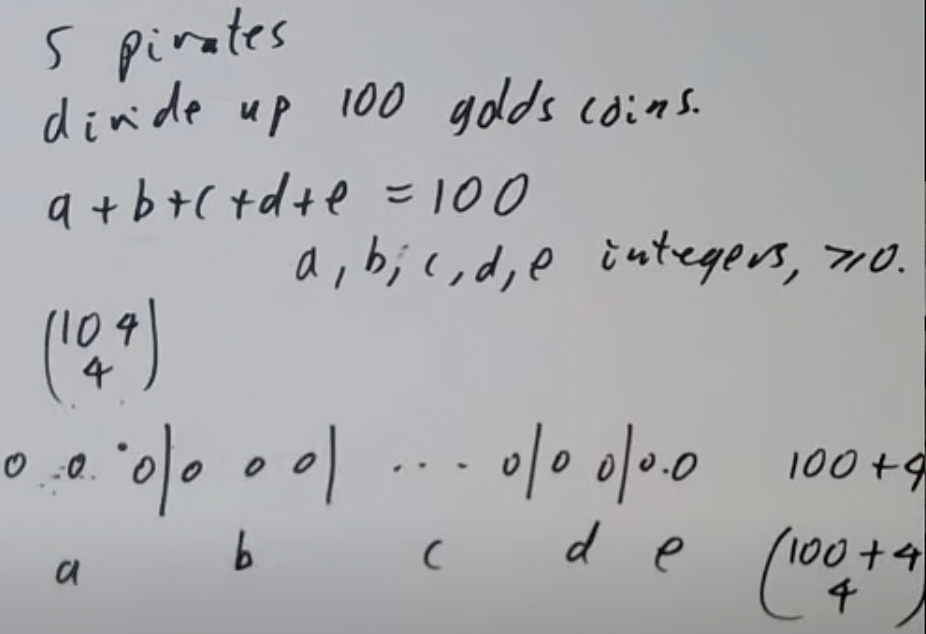 5 pirates
divide up 100 golds coins.
a + b + c + d + e = 100
a, b, c, d, e integers, ≥0.
(104
4)
0 . . 0 . 0|0 0 0| ... 0|0 0|0.0 100 + 4
a b c d e (100 + 4
4)